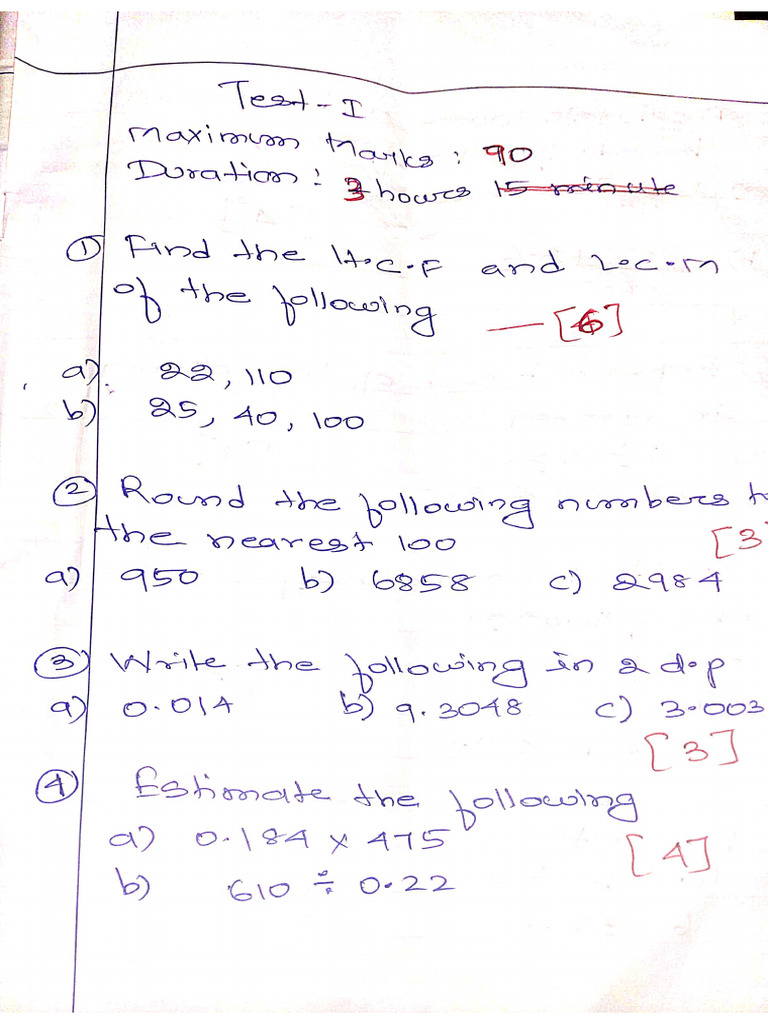 Test-I
Maximum Marks: 90
Duration: 3 hours 15 minute
① Find the H.C.F and L.C.M
of the following —[6]
a) 22, 110
b) 25, 40, 100
② Round the following numbers to
the nearest 100 [3]
a) 950 b) 6858 c) 2984
③ Write the following in 2 d.p
a) 0.014 b) 9.3048 c) 3.003
[3]
④ Estimate the following
a) 0.184 x 475
[4]
b) 610 ÷ 0.22